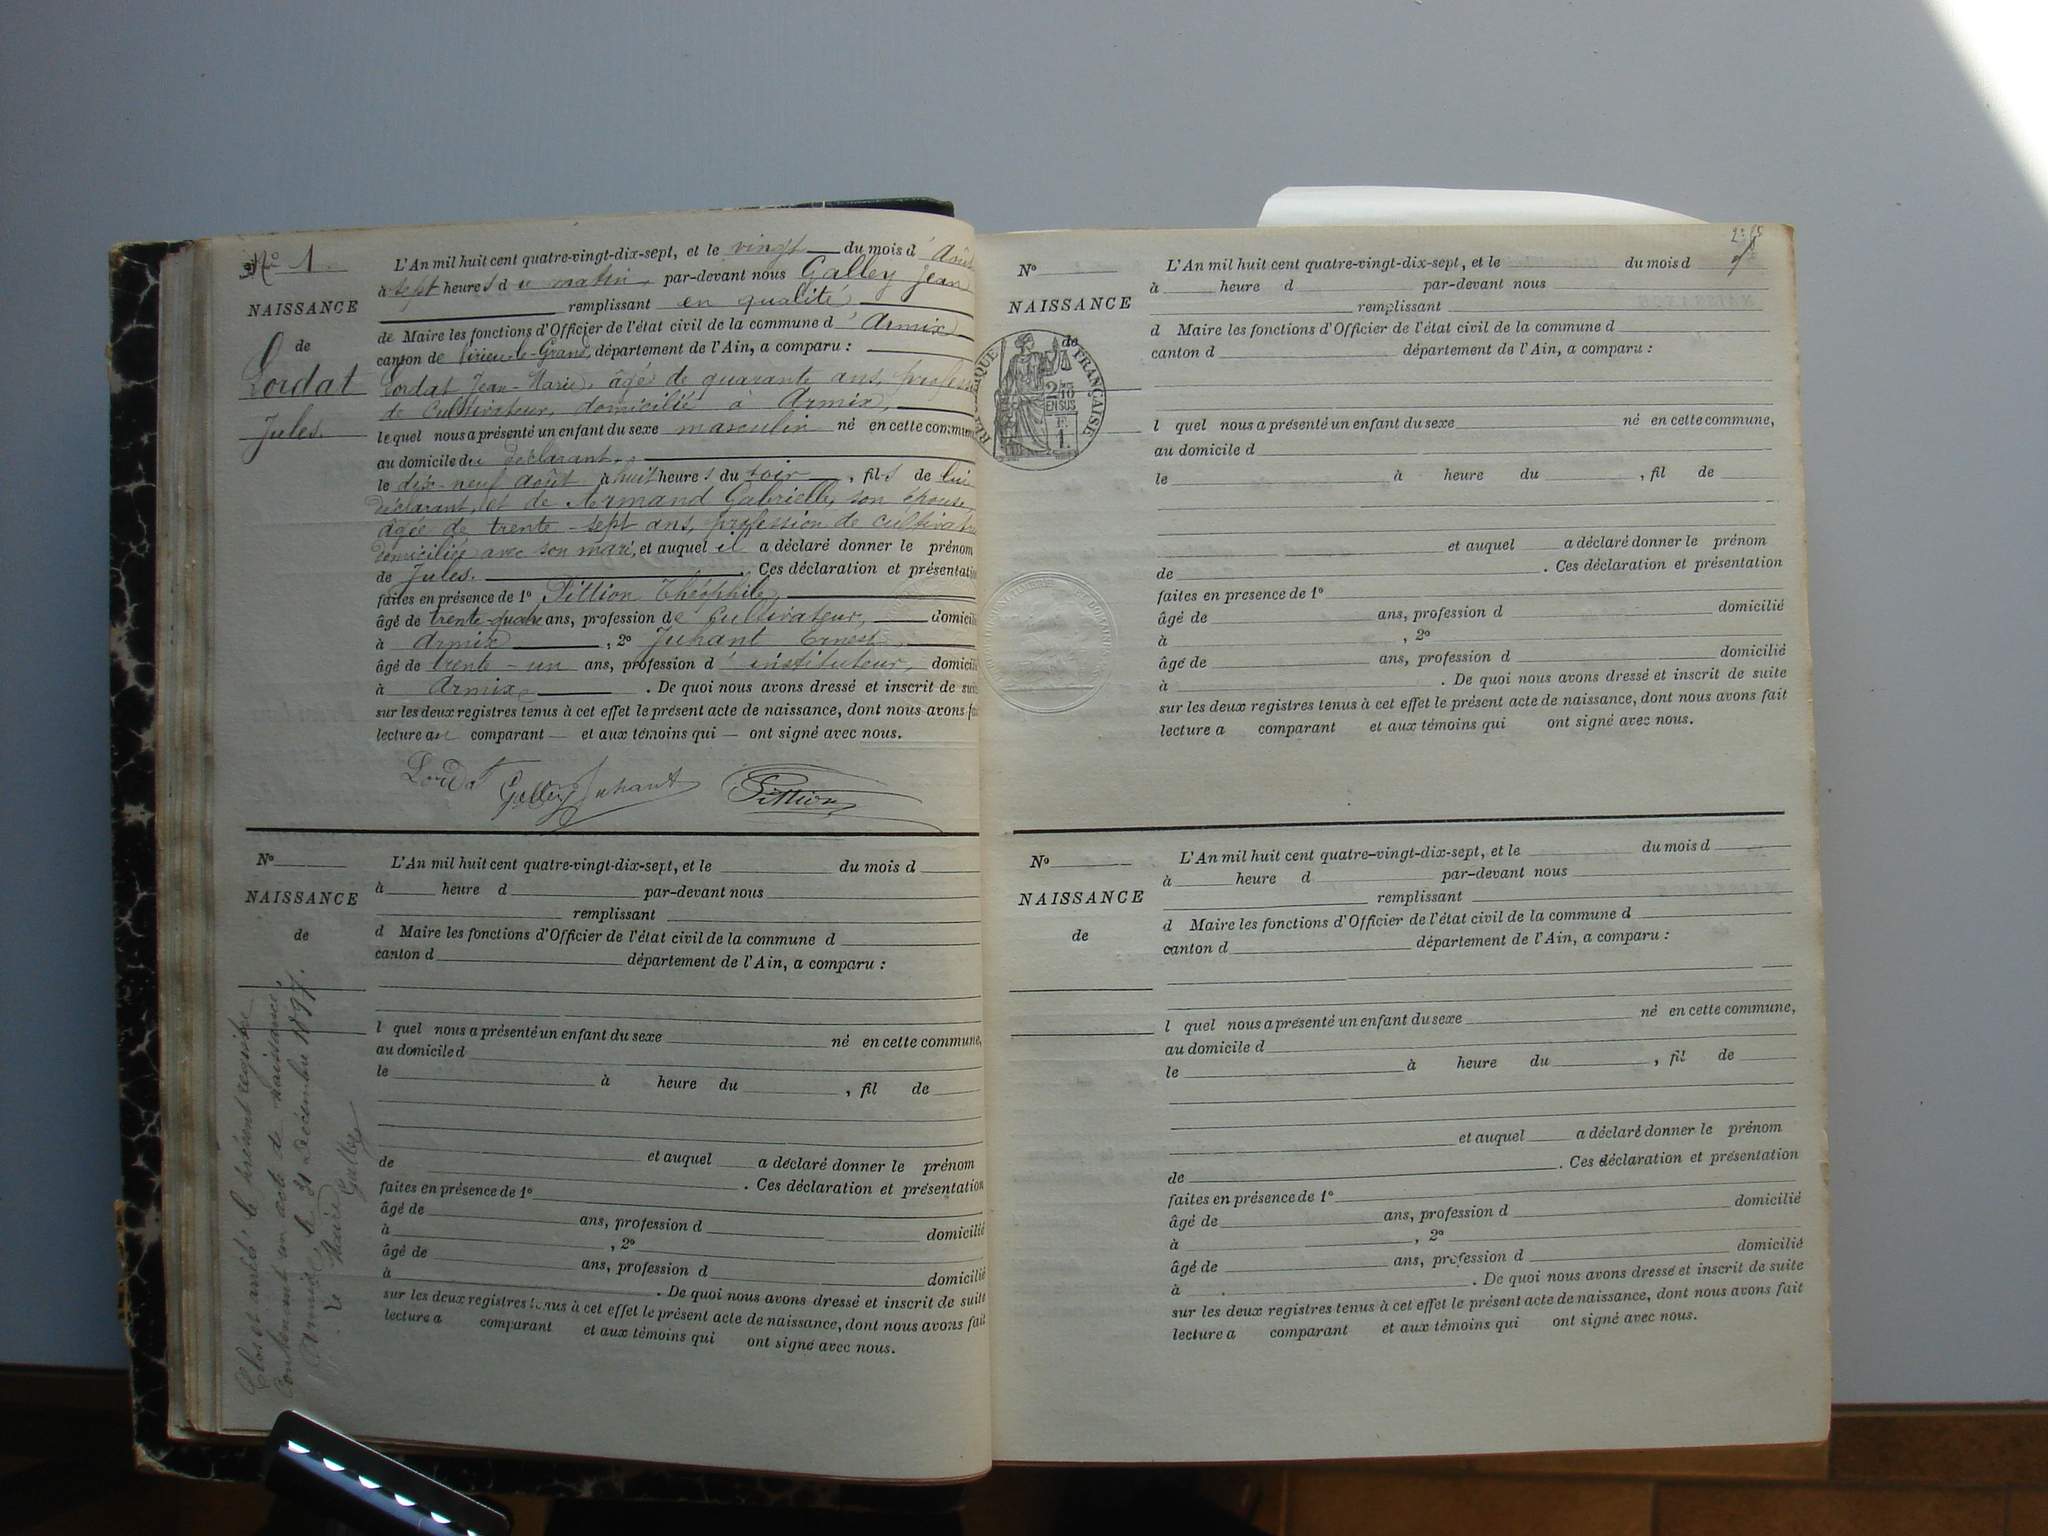 N° 1.
NAISSANCE
de
Lordat
Jules.
L'An mil huit cent quatre-vingt-dix-sept, et le vingt du mois d'Août
à sept heures du matin, par-devant nous Galley Jean
remplissant en qualité
de Maire les fonctions d'Officier de l'état civil de la commune d'Armix
canton de Virieu-le-Grand, département de l'Ain, a comparu :
Lordat Jean-Marie, âgé de quarante ans, profess
de Cultivateur, domicilié à Armix,
lequel nous a présenté un enfant du sexe masculin né en cette commun
au domicile du déclarant,
le dix-neuf août à huit heures du soir, fils de lui
déclarant, et de Armand Gabrielle, son épouse,
âgée de trente-sept ans, profession de cultivatri
domiciliée avec son mari, et auquel il a déclaré donner le prénom
de Jules. Ces déclaration et présentation
faites en présence de 1° Pittion Théophile,
âgé de trente-quatre ans, profession de cultivateur, domicili
à Armix, 2° Juhant Ernest,
âgé de trente-un ans, profession d'instituteur, domicili
à Armix. De quoi nous avons dressé et inscrit de suite
sur les deux registres tenus à cet effet le présent acte de naissance, dont nous avons fai
lecture au comparant — et aux témoins qui — ont signé avec nous.
Lordat Galley Juhant Pittion
N°
NAISSANCE
de
L'An mil huit cent quatre-vingt-dix-sept, et le du mois d
à heure d par-devant nous
remplissant
d Maire les fonctions d'Officier de l'état civil de la commune d
canton d département de l'Ain, a comparu :
l quel nous a présenté un enfant du sexe né en cette commune,
au domicile d
le à heure du , fil de
et auquel a déclaré donner le prénom
de . Ces déclaration et présentation
faites en présence de 1°
âgé de ans, profession d domicilié
à , 2°
âgé de ans, profession d domicilié
à . De quoi nous avons dressé et inscrit de suite
sur les deux registres tenus à cet effet le présent acte de naissance, dont nous avons fait
lecture a comparant et aux témoins qui ont signé avec nous.
Clos et arrêté le présent registre
Contenant un acte de naissance,
Armix, le 31 Décembre 1897.
Le Maire
Galley
N°
NAISSANCE
de
RÉPUBLIQUE FRANÇAISE
2/10
EN SUS
1
L'An mil huit cent quatre-vingt-dix-sept, et le du mois d
à heure d par-devant nous
remplissant
d Maire les fonctions d'Officier de l'état civil de la commune d
canton d département de l'Ain, a comparu :
l quel nous a présenté un enfant du sexe né en cette commune,
au domicile d
le à heure du , fil de
et auquel a déclaré donner le prénom
de . Ces déclaration et présentation
faites en presence de 1°
âgé de ans, profession d domicilié
à , 2°
âgé de ans, profession d domicilié
à . De quoi nous avons dressé et inscrit de suite
sur les deux registres tenus à cet effet le présent acte de naissance, dont nous avons fait
lecture a comparant et aux témoins qui ont signé avec nous.
N°
NAISSANCE
de
L'An mil huit cent quatre-vingt-dix-sept, et le du mois d
à heure d par-devant nous
remplissant
d Maire les fonctions d'Officier de l'état civil de la commune d
canton d département de l'Ain, a comparu :
l quel nous a présenté un enfant du sexe né en cette commune,
au domicile d
le à heure du , fil de
et auquel a déclaré donner le prénom
de . Ces déclaration et présentation
faites en présence de 1°
âgé de ans, profession d domicilié
à , 2°
âgé de ans, profession d domicilié
à . De quoi nous avons dressé et inscrit de suite
sur les deux registres tenus à cet effet le présent acte de naissance, dont nous avons fait
lecture a comparant et aux témoins qui ont signé avec nous.